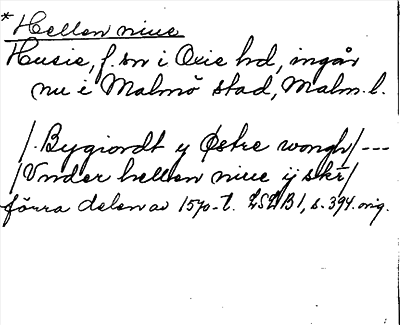 *Hellen niue
Husie, f. sn i Oxie hd, ingår
nu i Malmö stad, Malm. l.
/. Bygiordt y Østre wongh/ ---
/Vnder hellen niue ij skr/
förra delen av 1570-t. LSLB1, s. 394. orig.